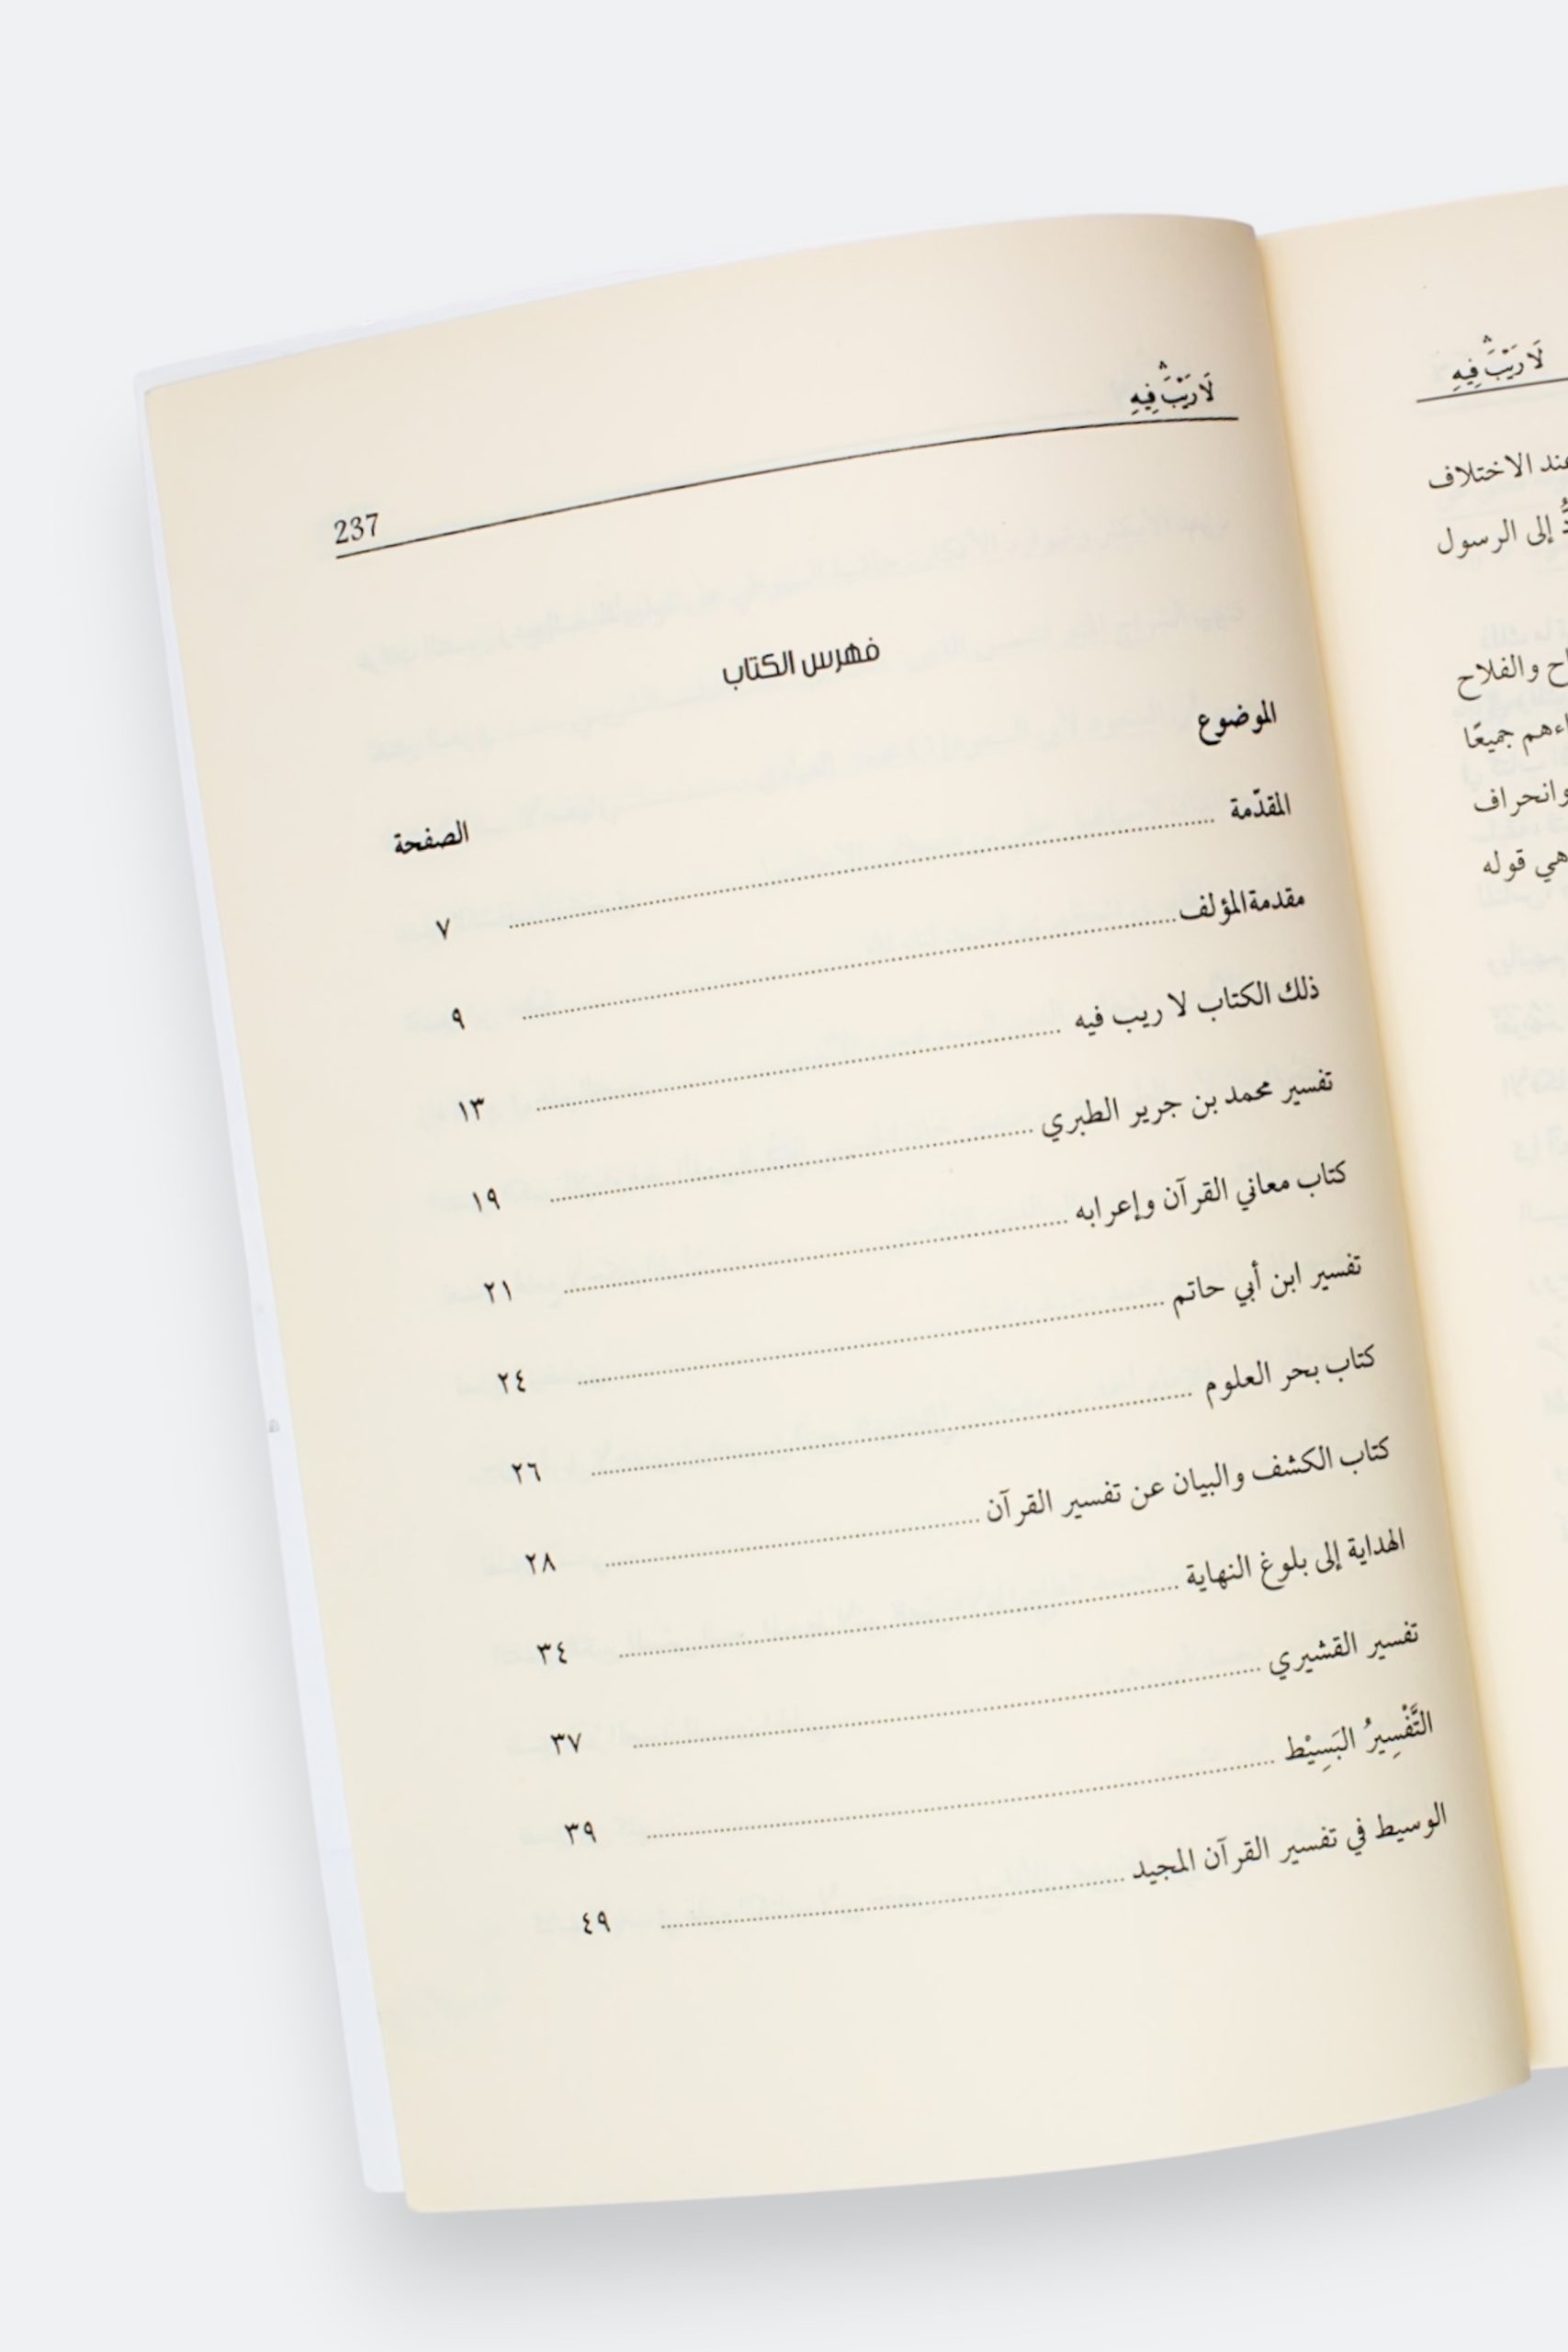 لَا رَيْبَ ۛ فِيهِ
عند الاختلاف
إلى الرسول
والفلاح
جميعًا
وانحراف
هي قوله
لَا رَيْبَ ۛ فِيهِ
237
فهرس الكتاب
الموضوع الصفحة
المقدّمة ........................ ٧
مقدمةالمؤلف ........................ ٩
ذلك الكتاب لا ريب فيه ........................ ١٣
تفسير محمد بن جرير الطبري ........................ ١٩
كتاب معاني القرآن وإعرابه ........................ ٢١
تفسير ابن أبي حاتم ........................ ٢٤
كتاب بحر العلوم ........................ ٢٦
كتاب الكشف والبيان عن تفسير القرآن ........................ ٢٨
الهداية إلى بلوغ النهاية ........................ ٣٤
تفسير القشيري ........................ ٣٧
التَّفْسِيرُ البَسِيْط ........................ ٣٩
الوسيط في تفسير القرآن المجيد ........................ ٤٩